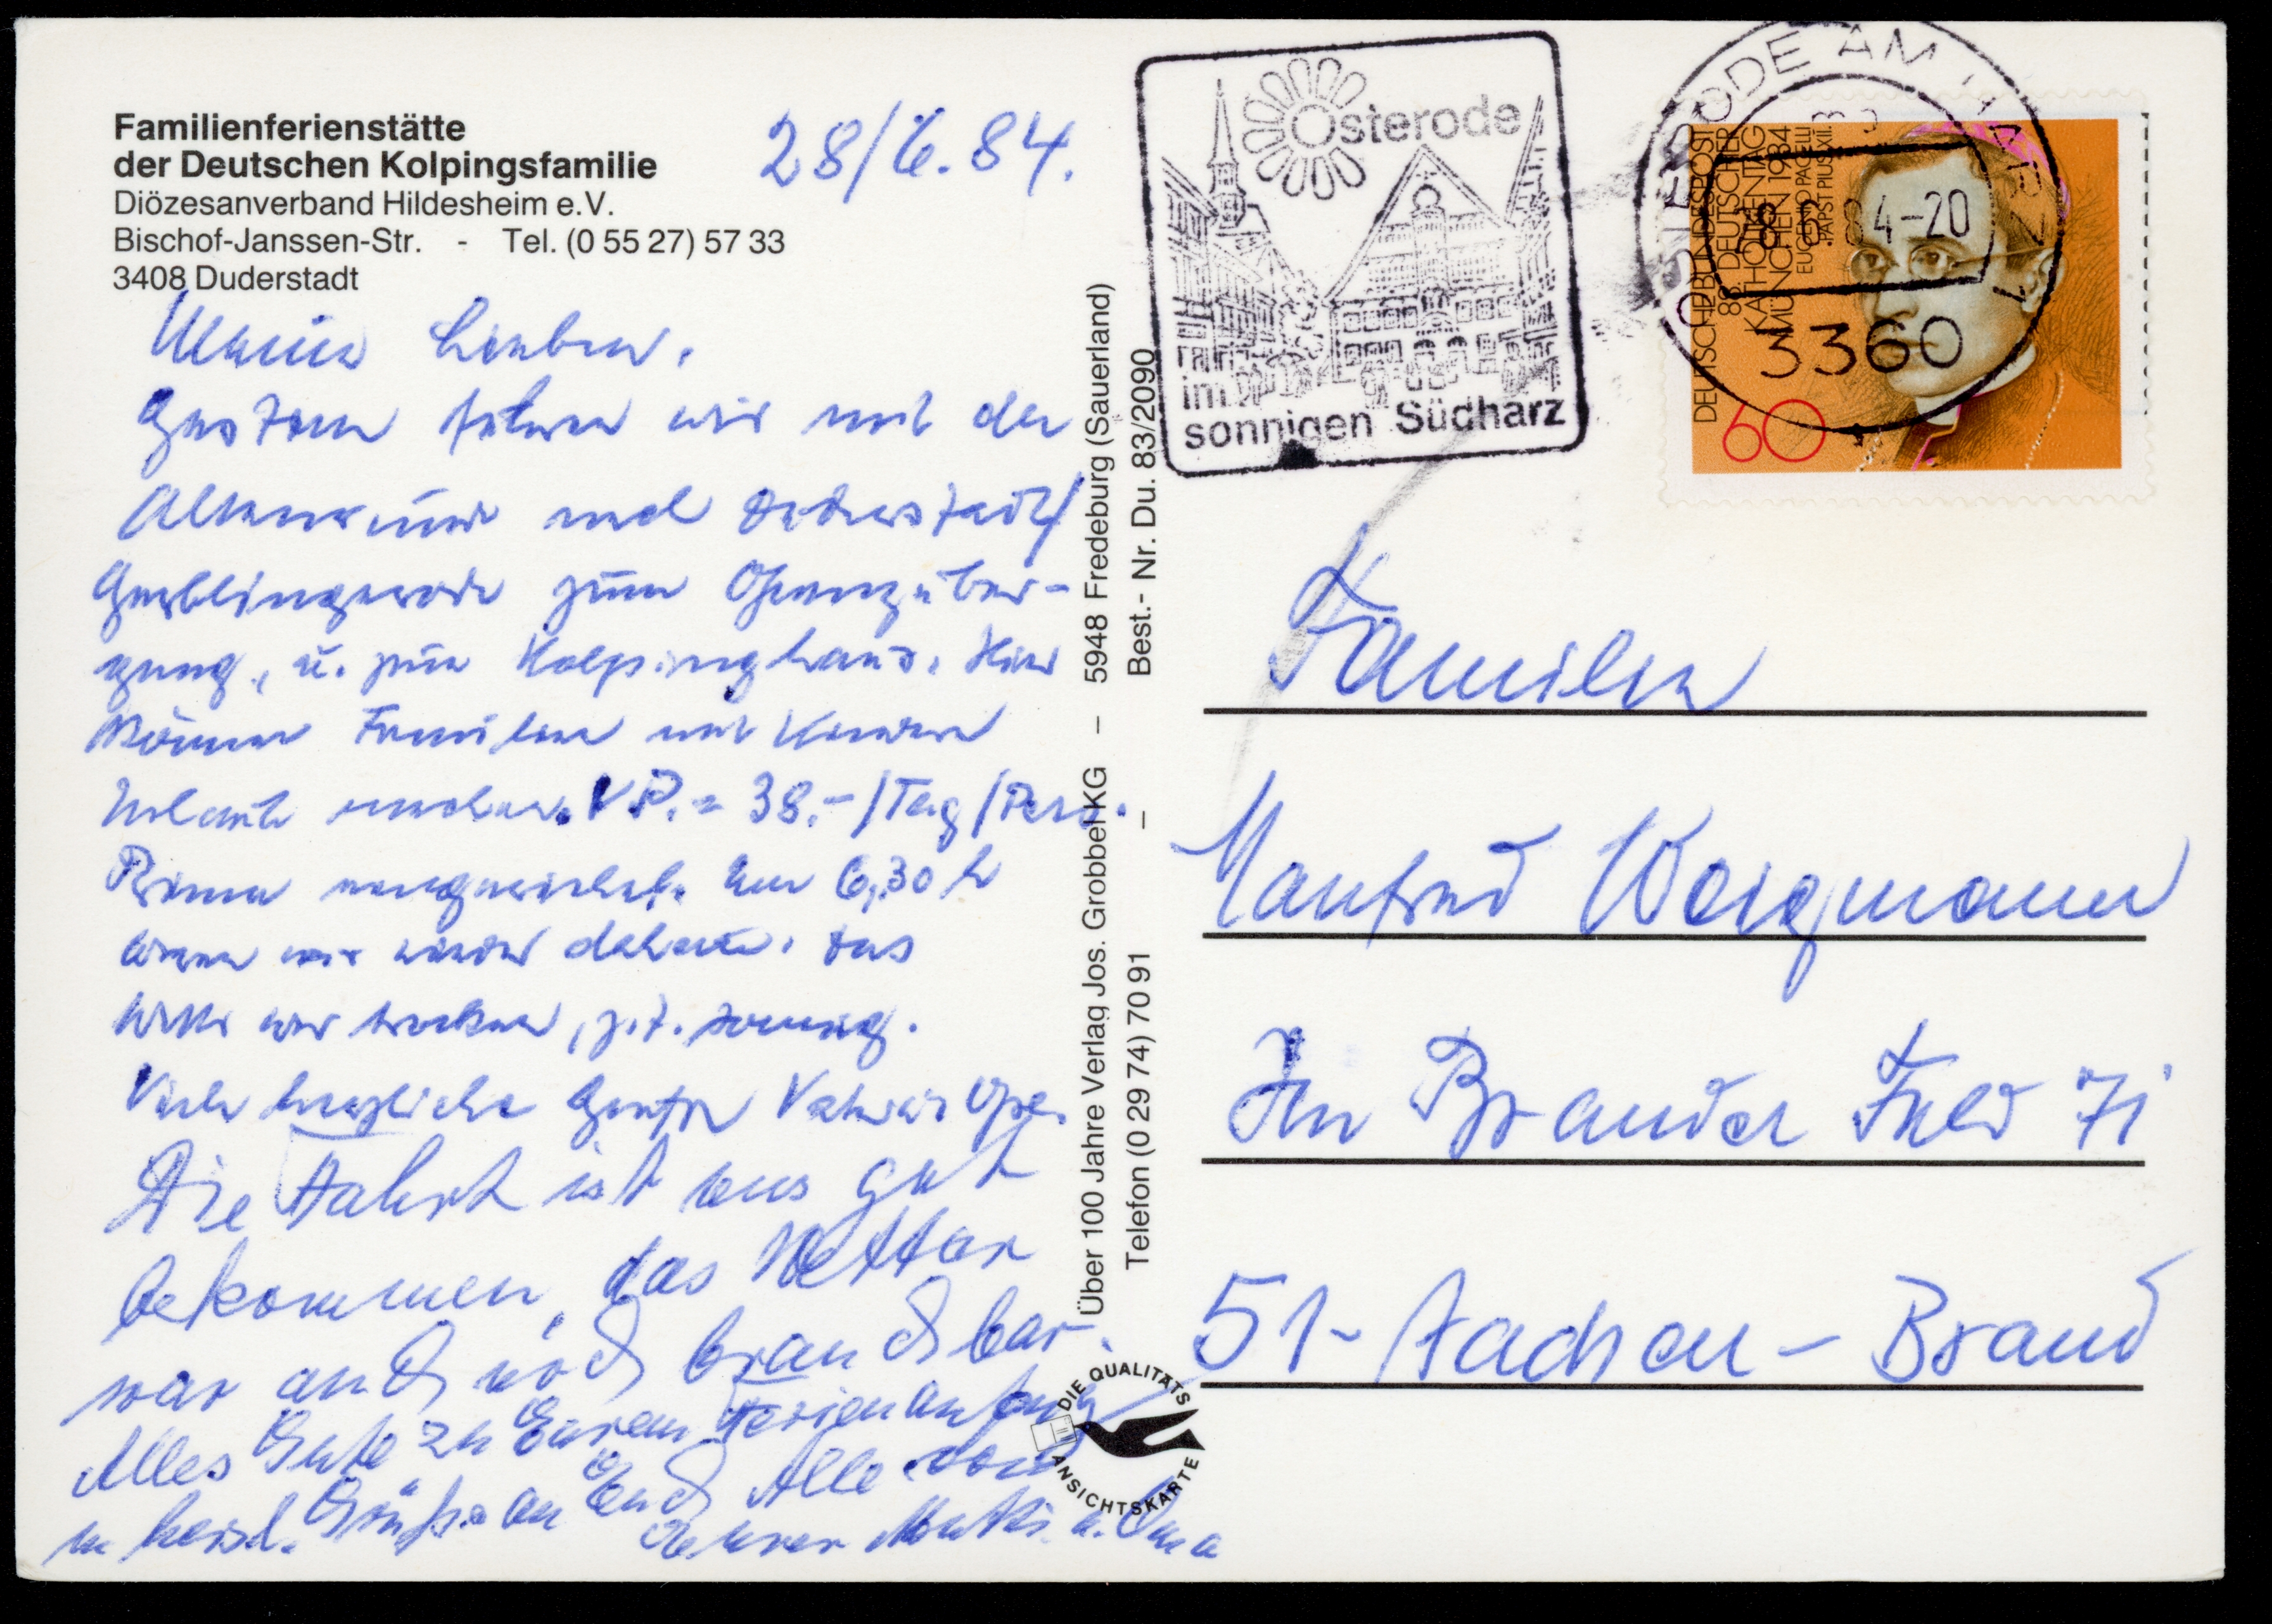 Familienferienstätte
der Deutschen Kolpingsfamilie
Diözesanverband Hildesheim e.V.
Bischof-Janssen-Str. - Tel. (0 55 27) 57 33
3408 Duderstadt
28/6.84.
Meine Lieben,
Gestern fuhren wir mit der
nach Duderstadt/
Gerblingerode zum Grenzüber-
gang, u. zum Kolpinghaus. Hier
können Familien mit Kindern
Urlaub machen. V.P. = 38.-/Tag/Pers.
Prima eingerichtet. Um 6,30 h
waren wir wieder daheim. Das
Wetter war trocken, z.T. sonnig.
Viele herzliche Grüße Vater u. Opa.
Die Fahrt ist uns gut
bekommen, das Wetter
war auch noch brauchbar.
Alles Gute zu Eurem Ferienanfang
u. herzl. Grüße an Euch Alle von
Eurer Mutti u. Oma
Über 100 Jahre Verlag Jos. Grobbel KG – 5948 Fredeburg (Sauerland)
Telefon (0 29 74) 70 91 – Best.- Nr. Du. 83/2090
DIE QUALITÄTS
ANSICHTSKARTE
Osterode
im
sonnigen Südharz
OSTERODE AM HARZ 1
28.6.84-20
3360
DEUTSCHE BUNDESPOST
88. DEUTSCHER
KATHOLIKENTAG
MÜNCHEN 1984
EUGENIO PACELLI
PAPST PIUS XII.
60
Familie
Manfred Wergmann
Im Brander Feld 71
51-Aachen-Brand